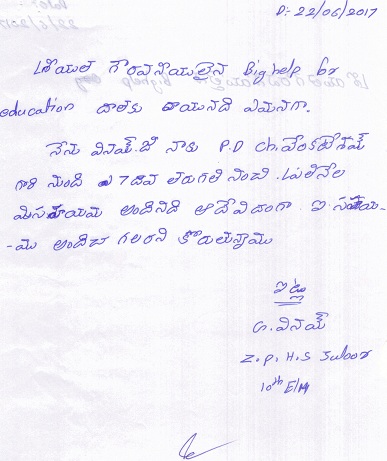 D: 22/06/2017
గౌరవనీయులైన Big help for
education దాతకు వ్రాయునది ఏమనగా.
నేను వినయ్.జి నాకు P.D Ch.వెంకటేశమ్
గారి నుండి 7వ తరగతి నుంచి
అందినది ఆదేవిదంగా ఈ సహాయ-
-ము అందించ గలరని కోరుతున్నాము
ఇట్లు
G.వినయ్
Z.P.H.S
10th E/M